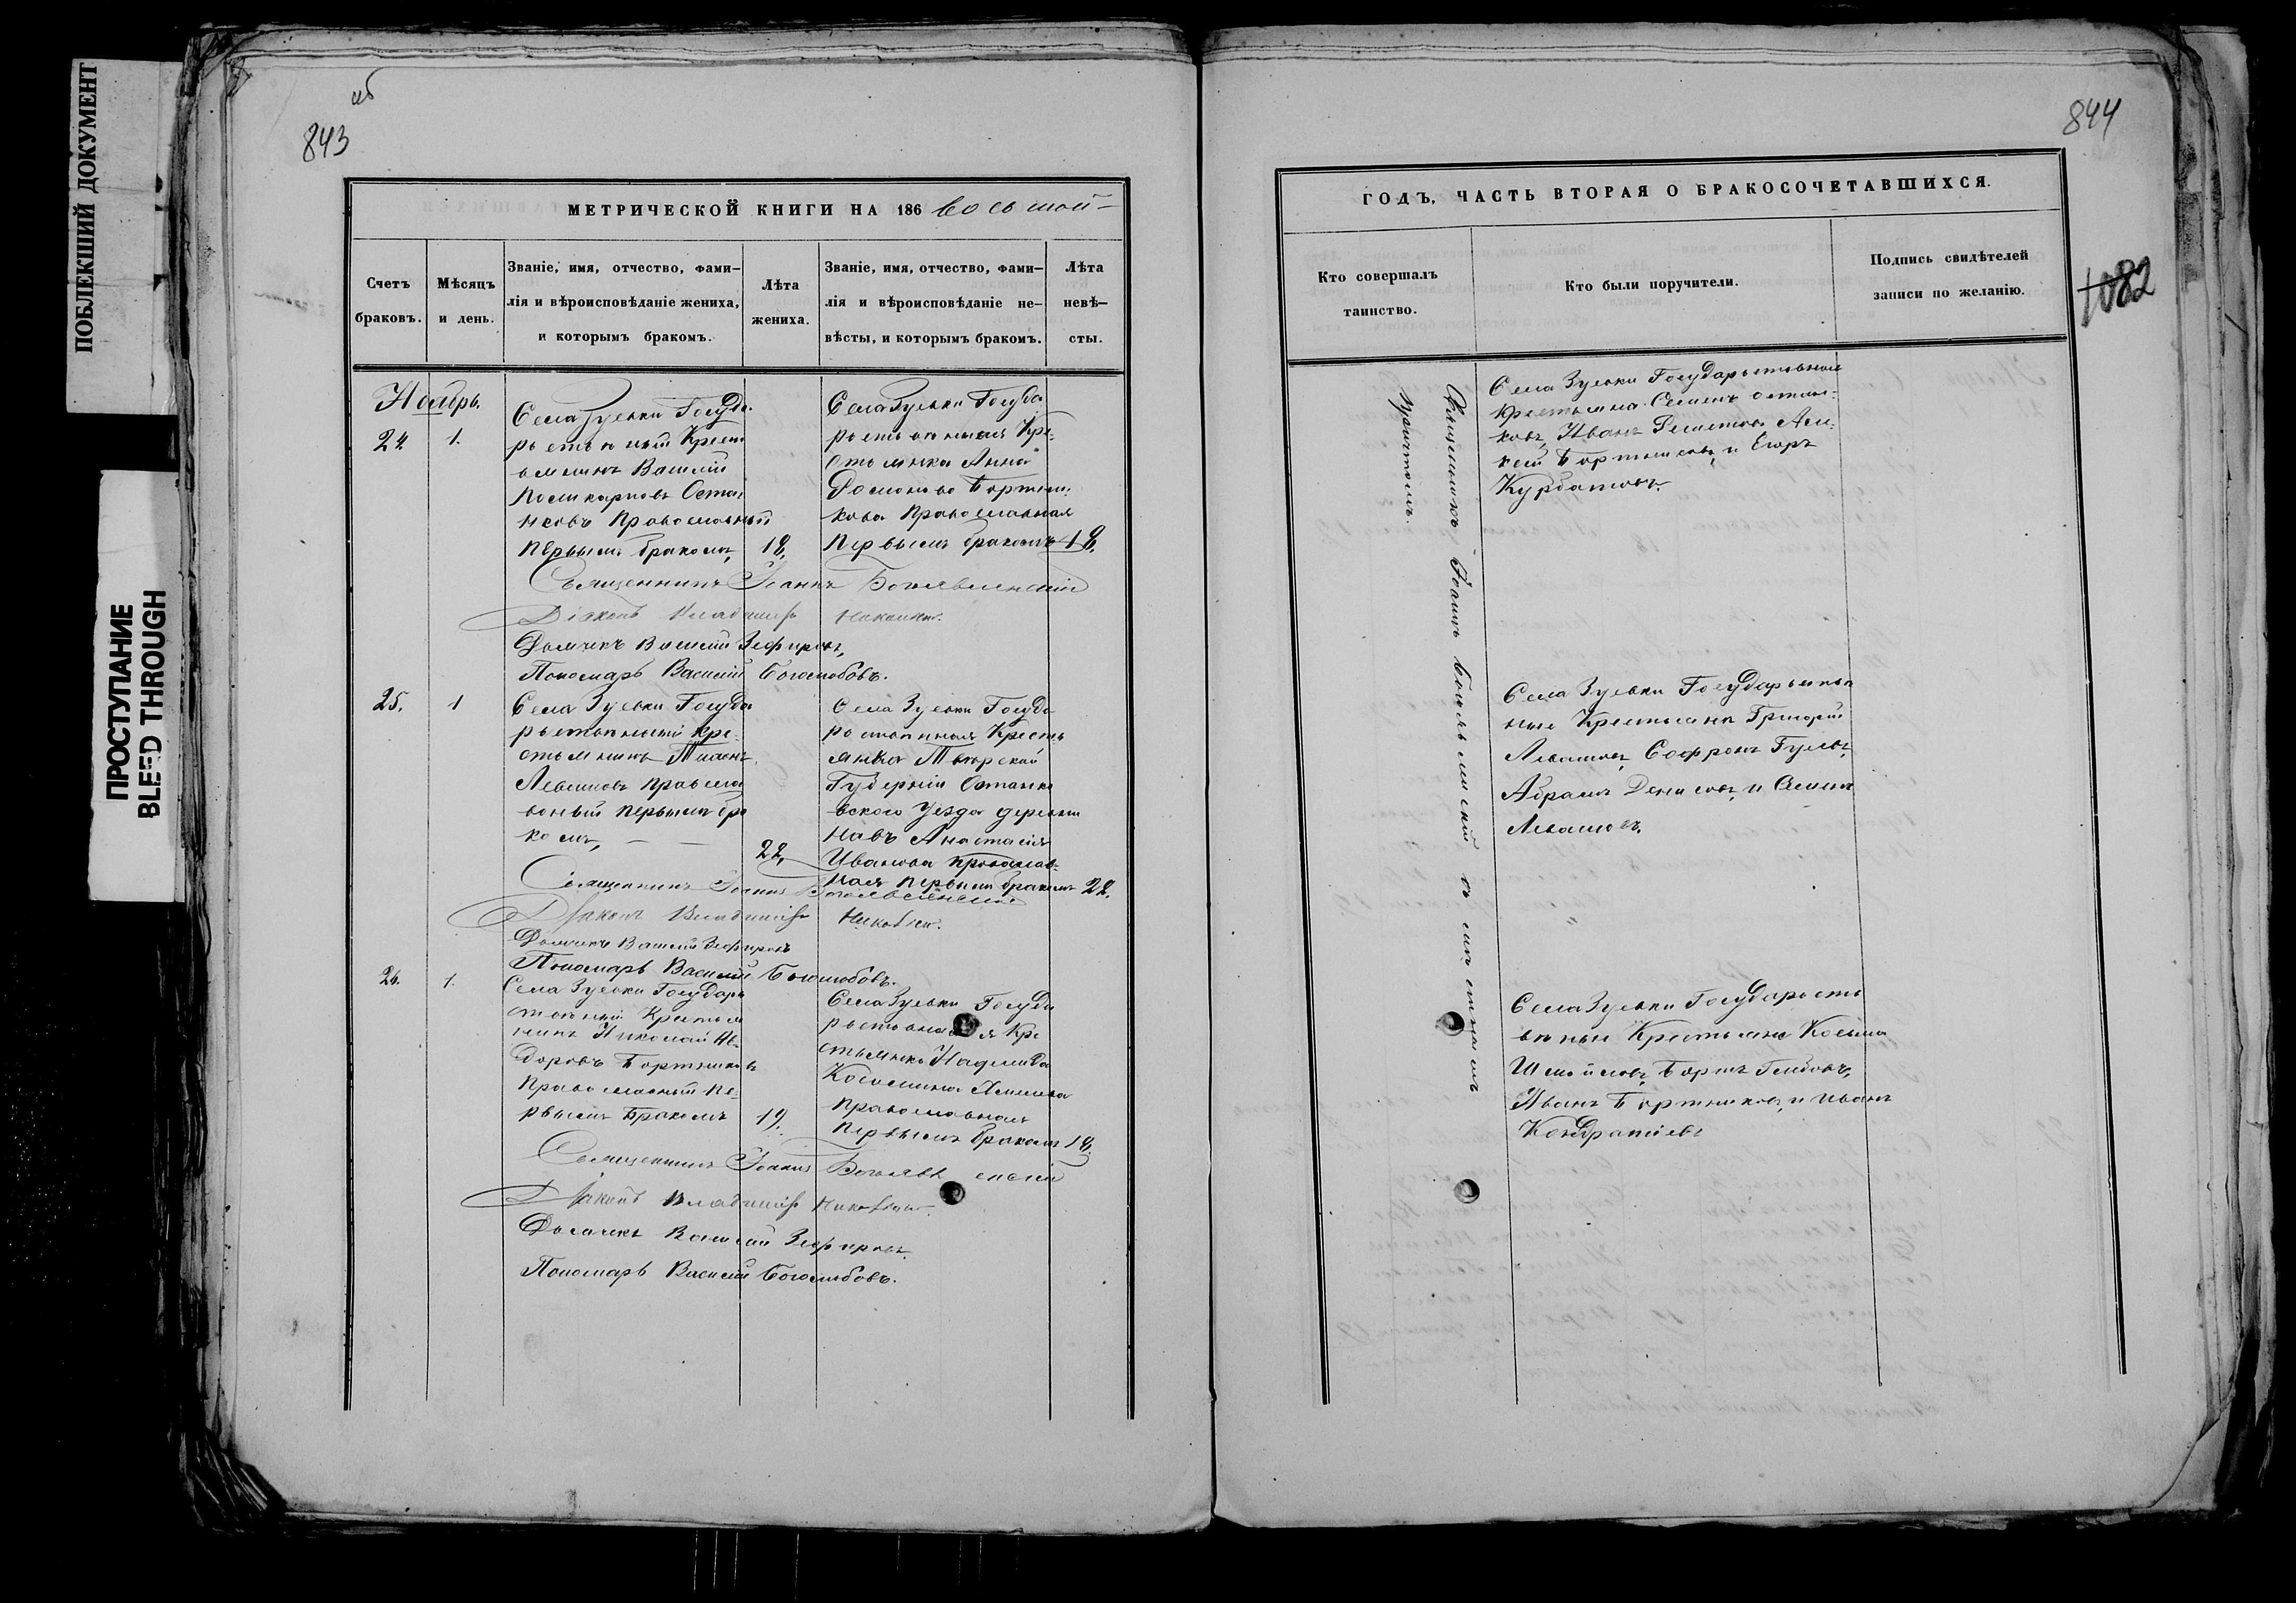 ПОБЛЕКШИЙ ДОКУМЕНТ
ПРОСТУПАНИЕ
BLEED THROUGH
843
МЕТРИЧЕСКОЙ КНИГИ НА 186 восьмой
Счетъ
браковъ.
Мѣсяцъ
и день.
Званіе, имя, отчество, фами-
лія и вѣроисповѣданіе жениха,
и которымъ бракомъ.
Лѣта
жениха.
Званіе, имя, отчество, фами-
лія и вѣроисповѣданіе не-
вѣсты, и которымъ бракомъ.
Лѣта
невѣ-
сты.
Ноябрь.
24 1.
Села Зуевки Государ
рьственный Крест
ьянинъ Василій
Поликарповъ Остан
нковъ Православный
первымъ бракомъ, 18,
Села Зуевки Госуда
рьственная Кре
стьянка Анна
Бортни-
кова Православная
Первымъ бракомъ 18,
Священникъ Іоаннъ Богоявленскій
Діаконъ Владиміръ
Дьячекъ Василій Зефировъ,
Пономарь Василій Боголюбовъ.
25. 1
Села Зуевки Госуда
рьственный Кре-
стьянинъ
Левашовъ правосла
вный первымъ бра
комъ, 22,
Села Зуевки Госуда
рственная Кресть
янка Тверской
Губерніи Осташко
вского Уезда деревни
Анастасія
Иванова православ-
ная первымъ бракомъ 22.
Священникъ Іоаннъ Богоявленскій
Діаконъ Владиміръ
Дьячекъ Василій Зефировъ
Пономарь Василій Боголюбовъ.
26. 1.
Села Зуевки Государь
ственный Крестья
нинъ Николай
Бортников
Православный Пе-
рвымъ Бракомъ 19.
Села Зуевки Госуда
рьственная Кре
стьянка Надежда
Косьмина
Православная
Первымъ бракомъ 18.
Священникъ Іоаннъ Богоявленскій
Діаконъ Владиміръ
Дьячекъ Василій Зефировъ.
Пономарь Василій Боголюбовъ.
844
1082
ГОДЪ, ЧАСТЬ ВТОРАЯ О БРАКОСОЧЕТАВШИХСЯ.
Кто совершалъ
таинство.
Кто были поручители.
Подпись свидѣтелей
записи по желанію.
Священникъ Іоаннъ Богоявленскій съ
причтомъ.
Села Зуевки Государьственные
Крестьяна Семенъ Остан-
ковъ, Иванъ Решетовъ Але-
ксѣй Бортниковъ, и Егоръ
Курбатовъ.
Села Зуевки Государьствен
ные Крестьяна Григорій
Левашовъ, Софронъ
Абрамъ Денисовъ, и Семенъ
Левашовъ.
Села Зуевки Государьств
енные Крестьяна Косьма
Иванъ Бортниковъ, и Иванъ
Кондратіевъ